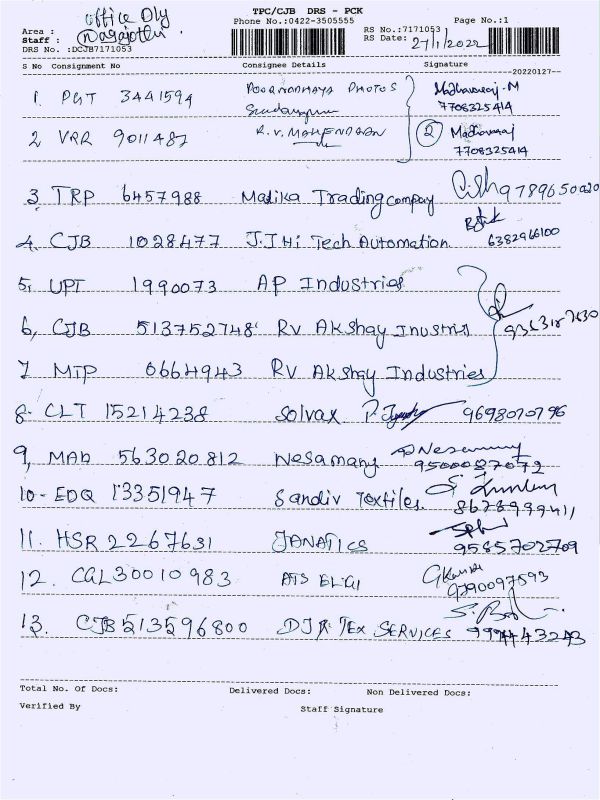 office Dly
TPC/CJB DRS - PCK
Area :
Phone No.:0422-3505555
Page No.:1
Staff :
RS No.:7171053
DRS No. :DCJB7171053
RS Date: 27/1/2022
S No Consignment No Consignee Details Signature
--20220127--
1. PGT 3441594 PHOTOS Madhavaraj.M
7708325414
2 VRR 9011487 R.V. MAHENDRAN 2 Madhavaraj
7708325414
3 TRP 6457988 Malika Trading company 9789650020
4. CJB 1028477 J.J Hi Tech Automation. 6382966100
5, UPT 1990073 AP Industries
6, CJB 513752748 Rv Akshay Inustris
7 MTP 0664943 Rv Akshay Industries
8- CLT 15214238 Solvax 9698070796
9, MAD 563020812 Nesamany
9500087072
10- EDQ 13351947 Sandiv Textiles.
11. HSR 2267631 JANATICS
9585702709
12. CGL30010983
9790097593
13. CJB513596800 TEX SERVICES
Total No. Of Docs: Delivered Docs: Non Delivered Docs:
Verified By Staff Signature